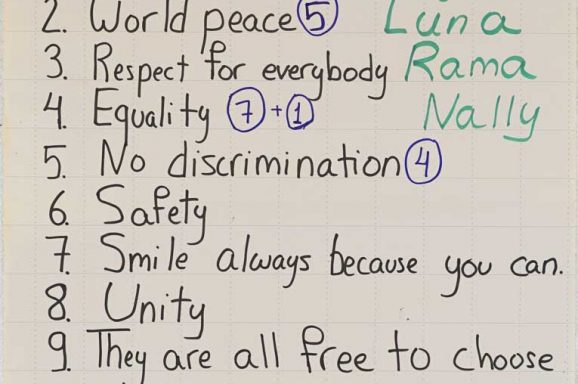 2. World peace 5 Luna
3. Respect for everybody Rama
4. Equality 7 + 1 Nally
5. No discrimination 4
6. Safety
7. Smile always because you can.
8. Unity
9. They are all free to choose